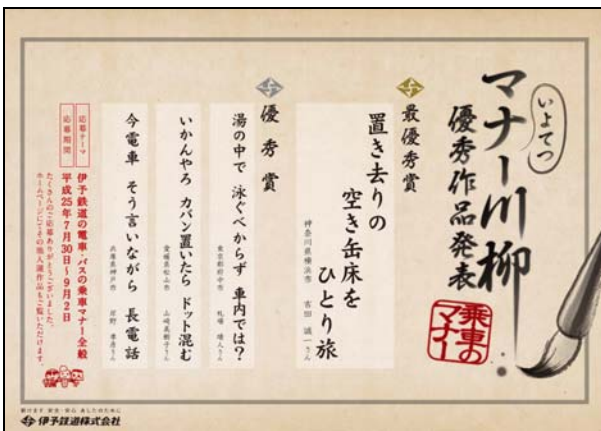 いよてつ
マナー川柳
優秀作品発表
乗車の
マナー
最優秀賞
置き去りの
空き缶床を
ひとり旅
神奈川県横浜市 吉田 誠一さん
優秀賞
湯の中で 泳ぐべからず 車内では?
東京都府中市
いかんやろ カバン置いたら ドット混む
愛媛県松山市 山崎
今電車 そう言いながら 長電話
兵庫県神戸市
応募テーマ 伊予鉄道の電車・バスの乗車マナー全般
応募期間 平成25年7月30日~9月2日
たくさんのご応募ありがとうございました。
ホームページにその他入選作品もご覧いただけます。
伊予鉄道株式会社